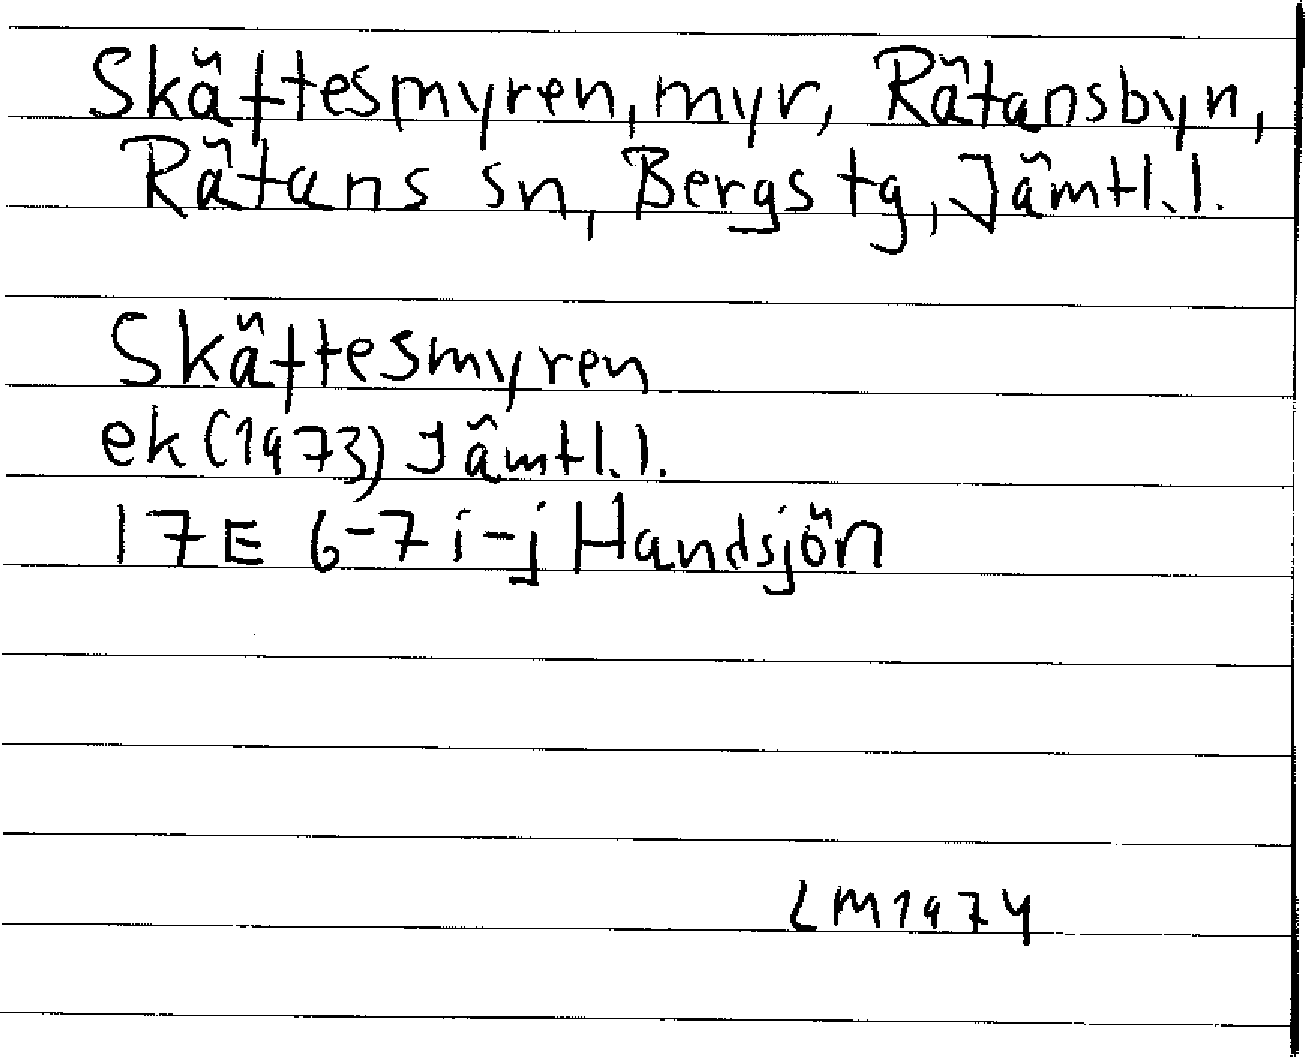 Skäftesmyren, myr, Rätansbyn,
Rätans sn, Bergs tg, Jämtl.l.
Skäftesmyren
ek (1973) Jämtl.l.
17E 6-7 i-j Handsjön
LM1974